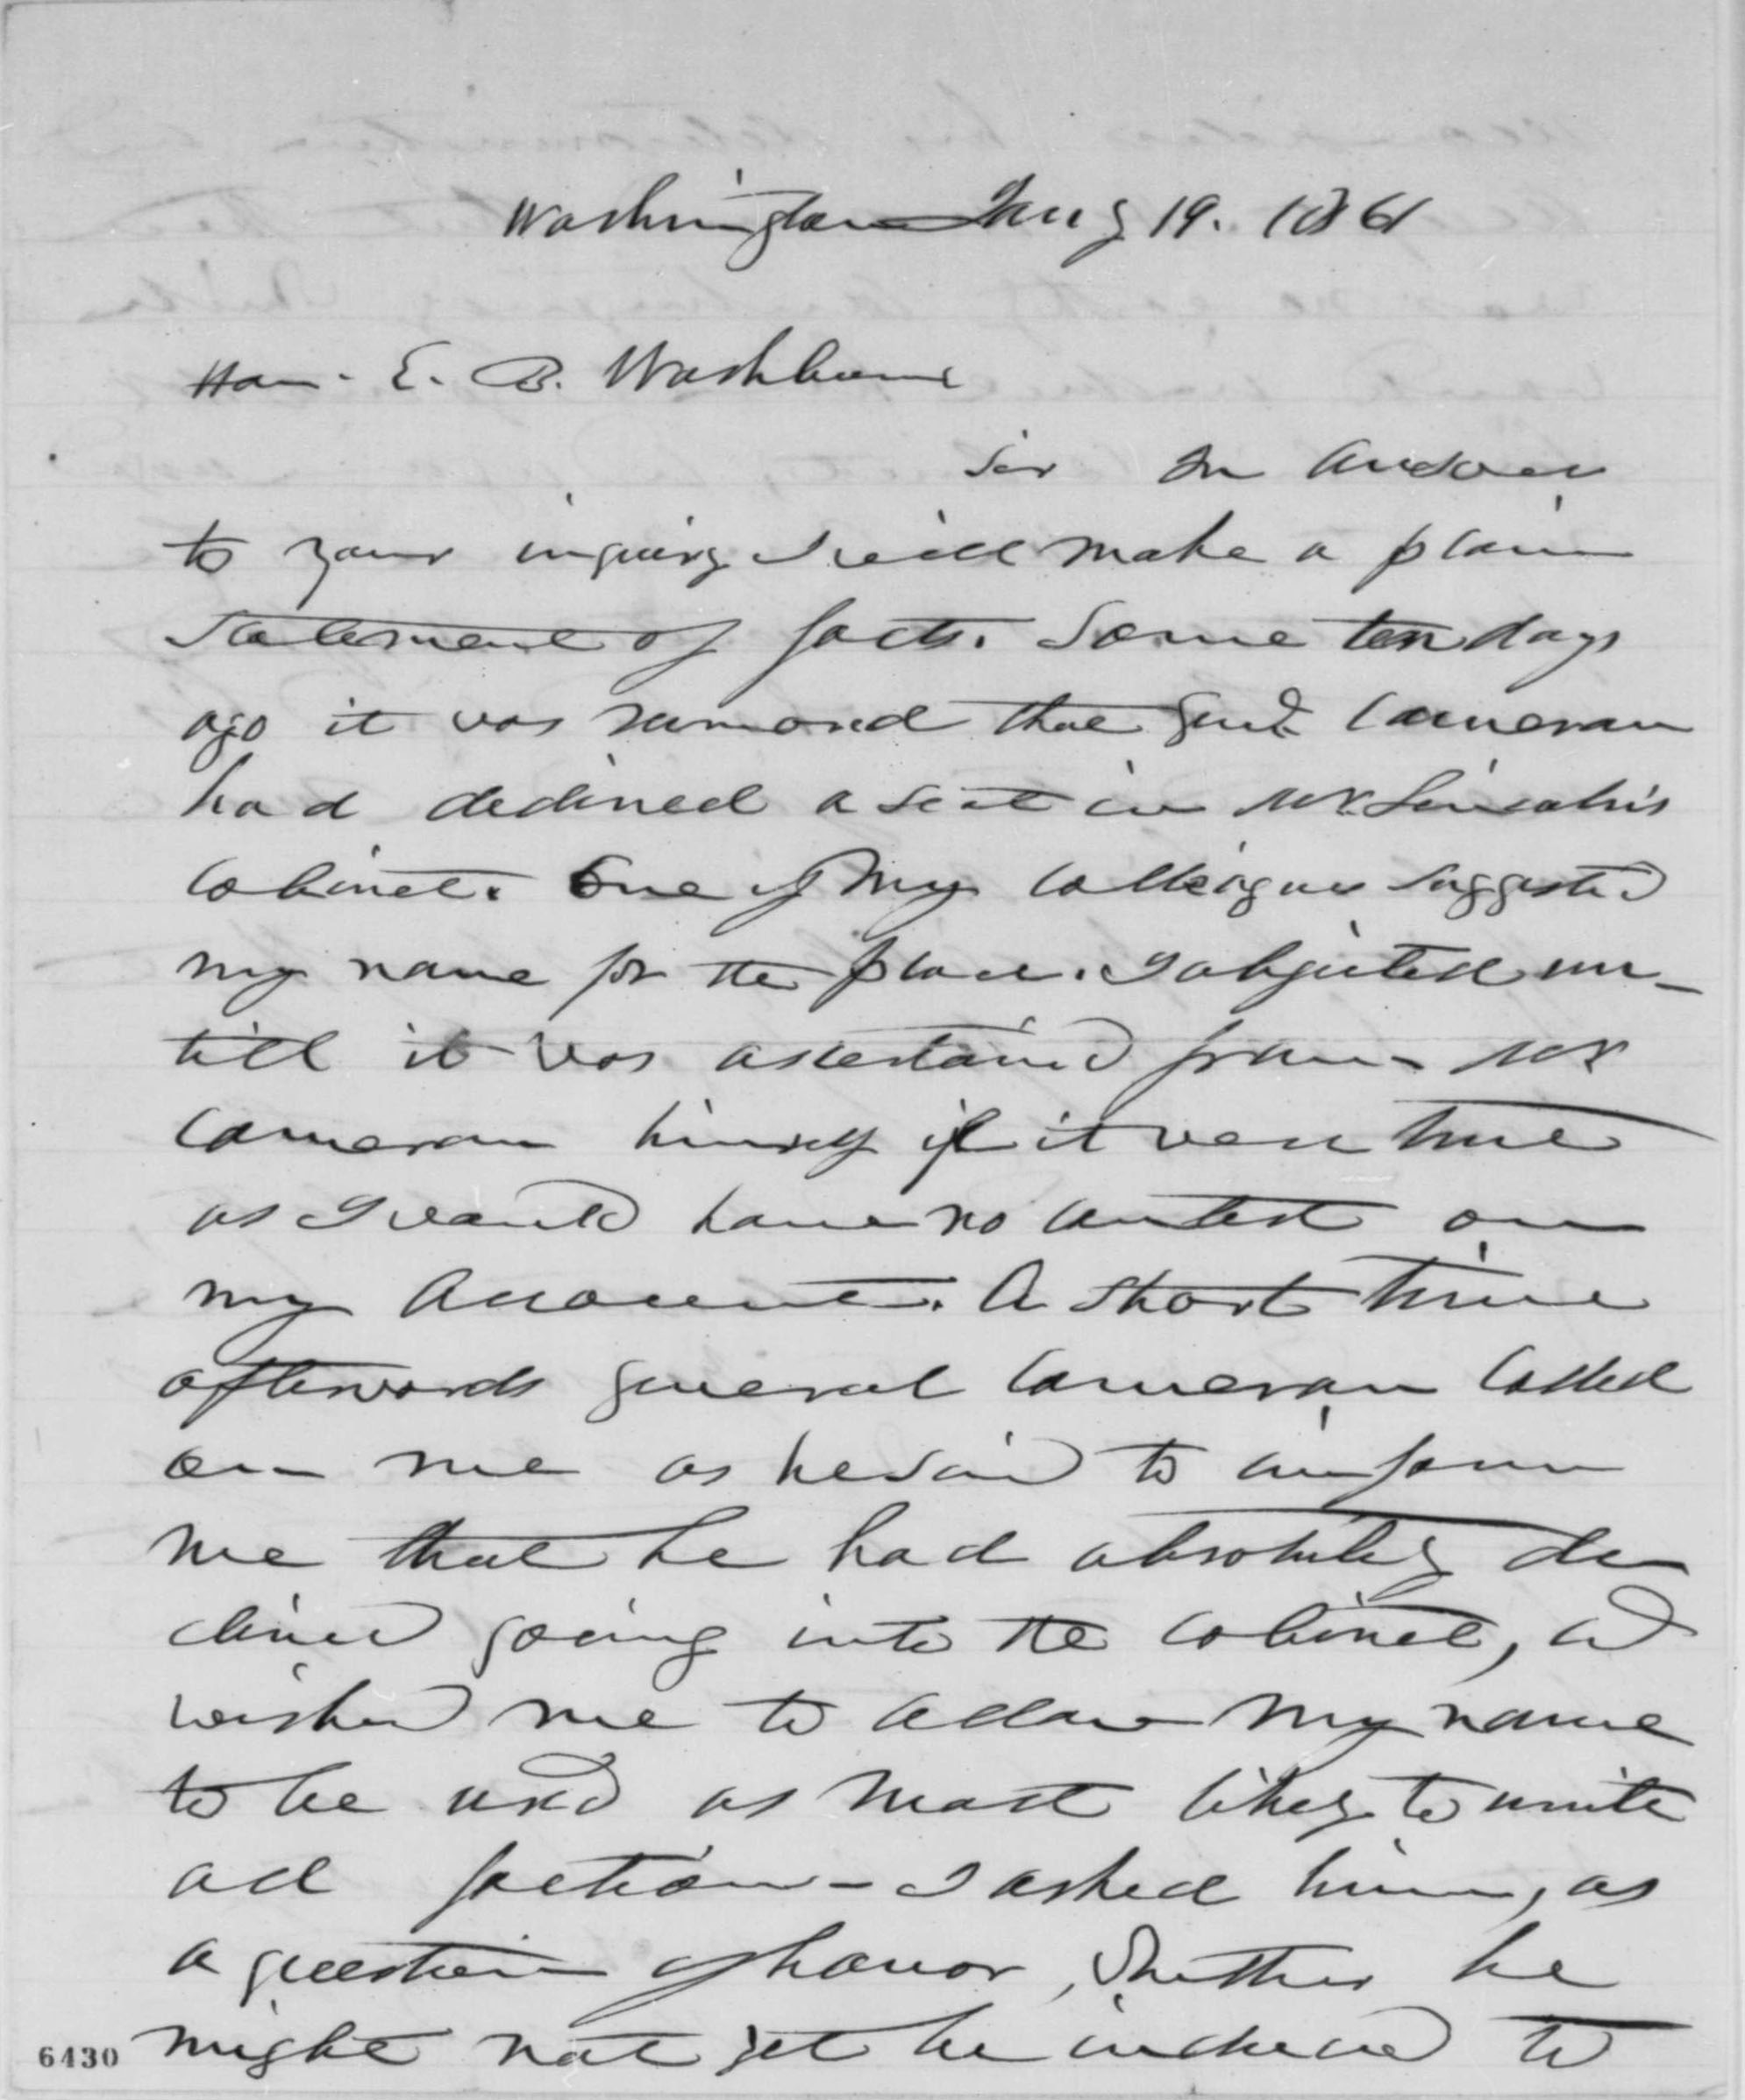 Washington Jany 19. 1861
Hon. E. B. Washburne
Sir In answer
to your inquiry I will make a plain
statement of facts. Some ten days
ago it was rumored that Genl Cameron
had declined a seat in Mr. Lincoln's
cabinet. One of my colleagues suggested
my name for the place. I objected un-
till it was ascertained from Mr
Cameron himself if it were true
as I would have no contest on
my account. A short time
afterwards general Cameron called
on me as he said to inform
me that he had absolutely de
clined going into the cabinet, &
wished me to allow my name
to be used as most likely to unite
all factions - I asked him, as
a question of honor, whether he
might not yet be induced to
6430